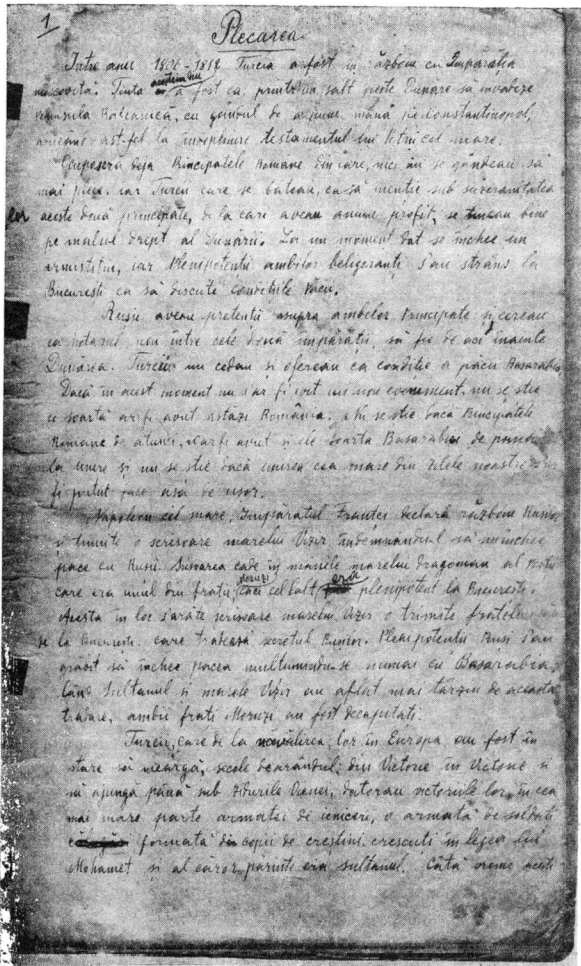 1
Plecarea
Intre anii 1806-1812 Turcia a fost in războiu cu Împărăția
moscovită. Tinta acesteia a fost ca, printr'un salt peste Dunăre sa invadeze
peninsula Balcanică, cu gândul de a pune mâna pe Constantinopol,
ast-fel la îndeplinire testamentul lui Petru cel mare.
Ocupaseră deja Principatele Române din care, nici nu se gândeau să
mai plece. iar Turcii care se băteau, ca să mentie sub suveranitatea
lor aceste două principate, de la cari aveau anume profit, se tineau bine
pe malul drept al Dunării. La un moment dat se închee un
armistitiu, iar Plenipotentii ambilor beligeranti s'au strâns la
Bucuresti ca să discute conditiile Păcii.
Rusii aveau pretentii asupra ambelor Principate si cereau
ca hotarul nou între cele două împărății, să fie de aci înainte
Dunărea. Turcii nu cedau si ofereau ca conditie a păcii Basarabia.
Dacă în acest moment nu s'ar fi ivit un nou eveniment, nu se stie
ce soartă ar fi avut astazi România. Nu se stie dacă Principatele
Române de atunci, n'ar fi avut si ele soarta Basarabiei de pana
la unire si nu se stie dacă unirea cea mare din zilele noastre s'ar
fi putut face asa de usor.
Napoleon cel mare, Împaratul Frantei declară războiu Rusiei
si trimite o scrisoare marelui Vizir îndemnandu'l sa nu închee
pace cu Rusii. Scrisoarea cade în mainile marelui dragoman al Portii
care era unul din fratii Moruzi caci cel lalt era plenipotent la Bucuresti.
Acesta în loc s'arate scrisoarea marelui Vizir o trimite fratelui
de la Bucuresti. care tradează secretul Rusilor. Plenipotentii Rusi s'au
grăbit să închee pacea multumindu-se numai cu Basarabia.
Când Sultanul si marele Vizir au aflat mai târziu de aceasta
tradare, ambii frati Moruzi au fost decapitati.
Turcii, care de la navalirea lor în Europa au fost în
stare să meargă, secole dearândul, din Victorie in Victorie si
sa ajunga pâna sub zidurile Vienei, datorau victoriile lor, in cea
mai mare parte armatei de ieniceri, o armată de soldati
formată din copii de crestini, crescuti în legea lui
Mohamet si al căror parinte era sultanul. Câtă vreme acesti